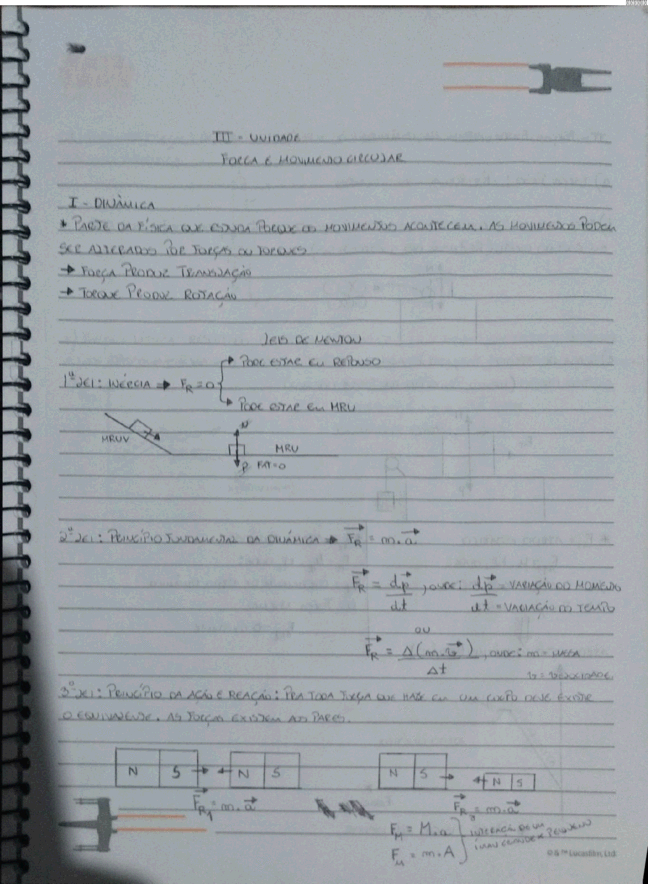 III - UNIDADE
FORÇA E MOVIMENTO CIRCULAR
I - DINÂMICA
* PARTE DA FÍSICA QUE ESTUDA PORQUE OS MOVIMENTOS ACONTECEM. AS MOVIMENTOS PODEM
SER ALTERADOS POR FORÇAS OU TORQUES
→ FORÇA PRODUZ TRANSLAÇÃO
→ TORQUE PRODUZ ROTAÇÃO
LEIS DE NEWTON
→ PODE ESTAR EM REPOUSO
1ª LEI: INÉRCIA → F_R = 0
→ PODE ESTAR EM MRU
MRUV
N
MRU
P FAT=0
2ª LEI: PRINCÍPIO FUNDAMENTAL DA DINÂMICA → F_R = m.a
F_R = dp/dt, ONDE: dp = VARIAÇÃO DO MOMENTO
dt = VARIAÇÃO DO TEMPO
OU
F_R = Δ(m.v)/Δt, ONDE: m = MASSA
v = VELOCIDADE
3ª LEI: PRINCÍPIO DA AÇÃO E REAÇÃO: PRA TODA FORÇA QUE HAJE EM UM CORPO DEVE EXISTIR
O EQUIVALENTE. AS FORÇAS EXISTEM AOS PARES.
N S N S N S N S
F_R1 = m.a F_R = m.a
F_M = M.a
F_m = m.A
© & ™ Lucasfilm Ltd.